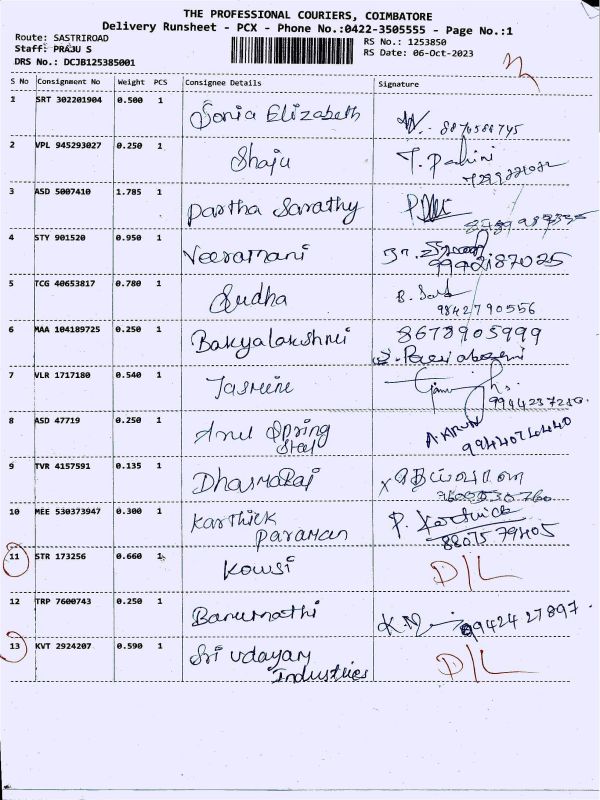 THE PROFESSIONAL COURIERS, COIMBATORE
Delivery Runsheet - PCX - Phone No.:0422-3505555 - Page No.:1
Route: SASTRIROAD
Staff: PRAJU S
DRS No.: DCJB125385001
RS No.: 1253850
RS Date: 06-Oct-2023
S No Consignment No Weight PCS Consignee Details Signature
1 SRT 302201904 0.500 1 Sonia Elizabeth
2 VPL 945293027 0.250 1 Shaju
3 ASD 5007410 1.785 1 Partha Sarathy
4 STY 901520 0.950 1 Veeramani 9942187025
5 TCG 40653817 0.780 1 Sudha 9842790556
6 MAA 104189725 0.250 1 Bakyalakshmi 8678905999
7 VLR 1717180 0.540 1 Jasmine
8 ASD 47719 0.250 1 Arul Spring
Steel A. ARUN
9 TVR 4157591 0.135 1 Dhasmaraj
10 MEE 530373947 0.300 1 Karthick
Paraman P. Karthick
8807579405
11 STR 173256 0.660 1 Kowsi D/L
12 TRP 7600743 0.250 1 Banumathi 9942427897.
13 KVT 2924207 0.590 1 Sri Udayam
Industries D/L